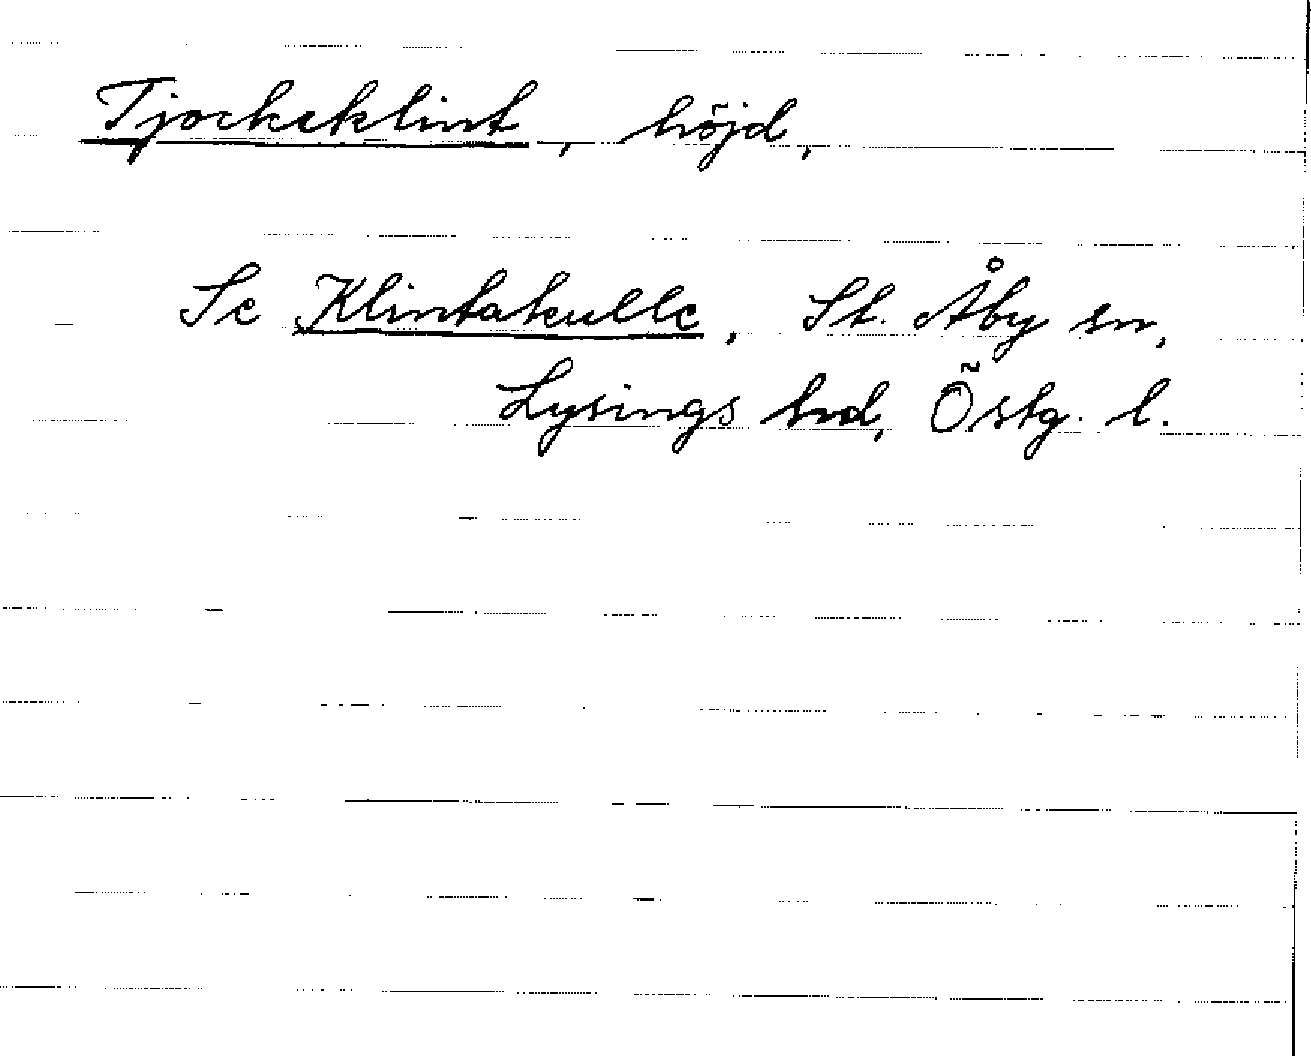 Tjockeklint, höjd,
Se Klintakulle, St. Åby sn,
Lysings hd, Östg. l.